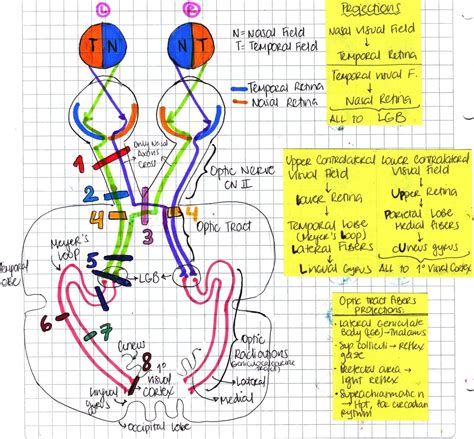 L
R
T N
N T
N= Nasal Field
T= Temporal Field
= Temporal Retina
= Nasal Retina
Projections
Nasal Visual Field
Temporal Retina
Temporal Visual F.
Nasal Retina
ALL TO LGB
1
Only Nasal
Axons
Cross
Optic Nerve
CN II
2
4
3
4
Optic Tract
Meyer's
Loop
Temporal
Lobe
5
LGB
6
7
8
Optic
Radiations
(geniculocalcarine
tract)
Cuneus
1º
Visual
CORTEX
Lateral
Medial
Lingual
gyrus
Occipital Lobe
Upper Contralateral
Visual Field
Lower Retina
Temporal Lobe
(Meyer's Loop)
Lateral Fibers
Lingual Gyrus
Lower Contralateral
Visual Field
Upper Retina
Parietal Lobe
Medial Fibers
cUneus gyrus
ALL TO 1º Visual Cortex
Optic Tract Fibers
Projections:
- Lateral Geniculate
Body (LGB) → thalamus
- Sup colliculi → Reflex
gaze
- Pretectal area →
light reflex
- Suprachiasmatic n
→ Hpt, for circadian
rhythm